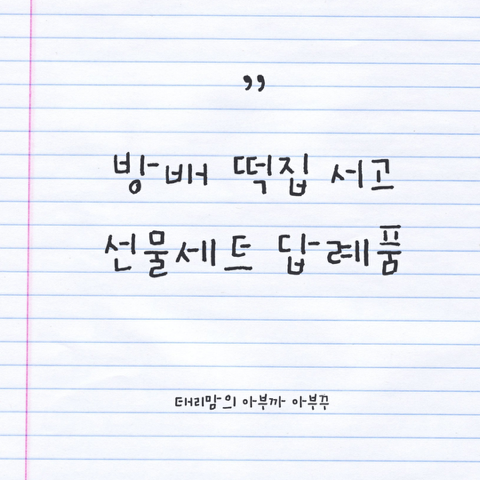 ”
방배 떡집 서고
선물세트 답례품
태리맘의 아부까 아부꾸